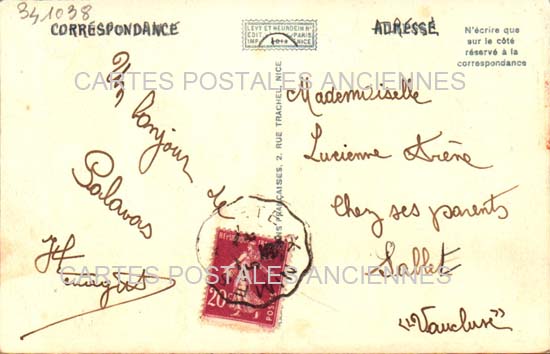 341038
CORRESPONDANCE
LEVY ET NEURDEIN Rⁿ
EDIT
PARIS
IMP
NICE
ADRESSE
N'écrire que
sur le côté
réservé à la
correspondance
CARTES POSTALES ANCIENNES
bonjour
de
Palavas
2, RUE TRACHEL, NICE
Mademoiselle
Lucienne Arène
Chez ses parents
Sablet
"Vaucluse"
CARTES POSTALES ANCIENNES
20